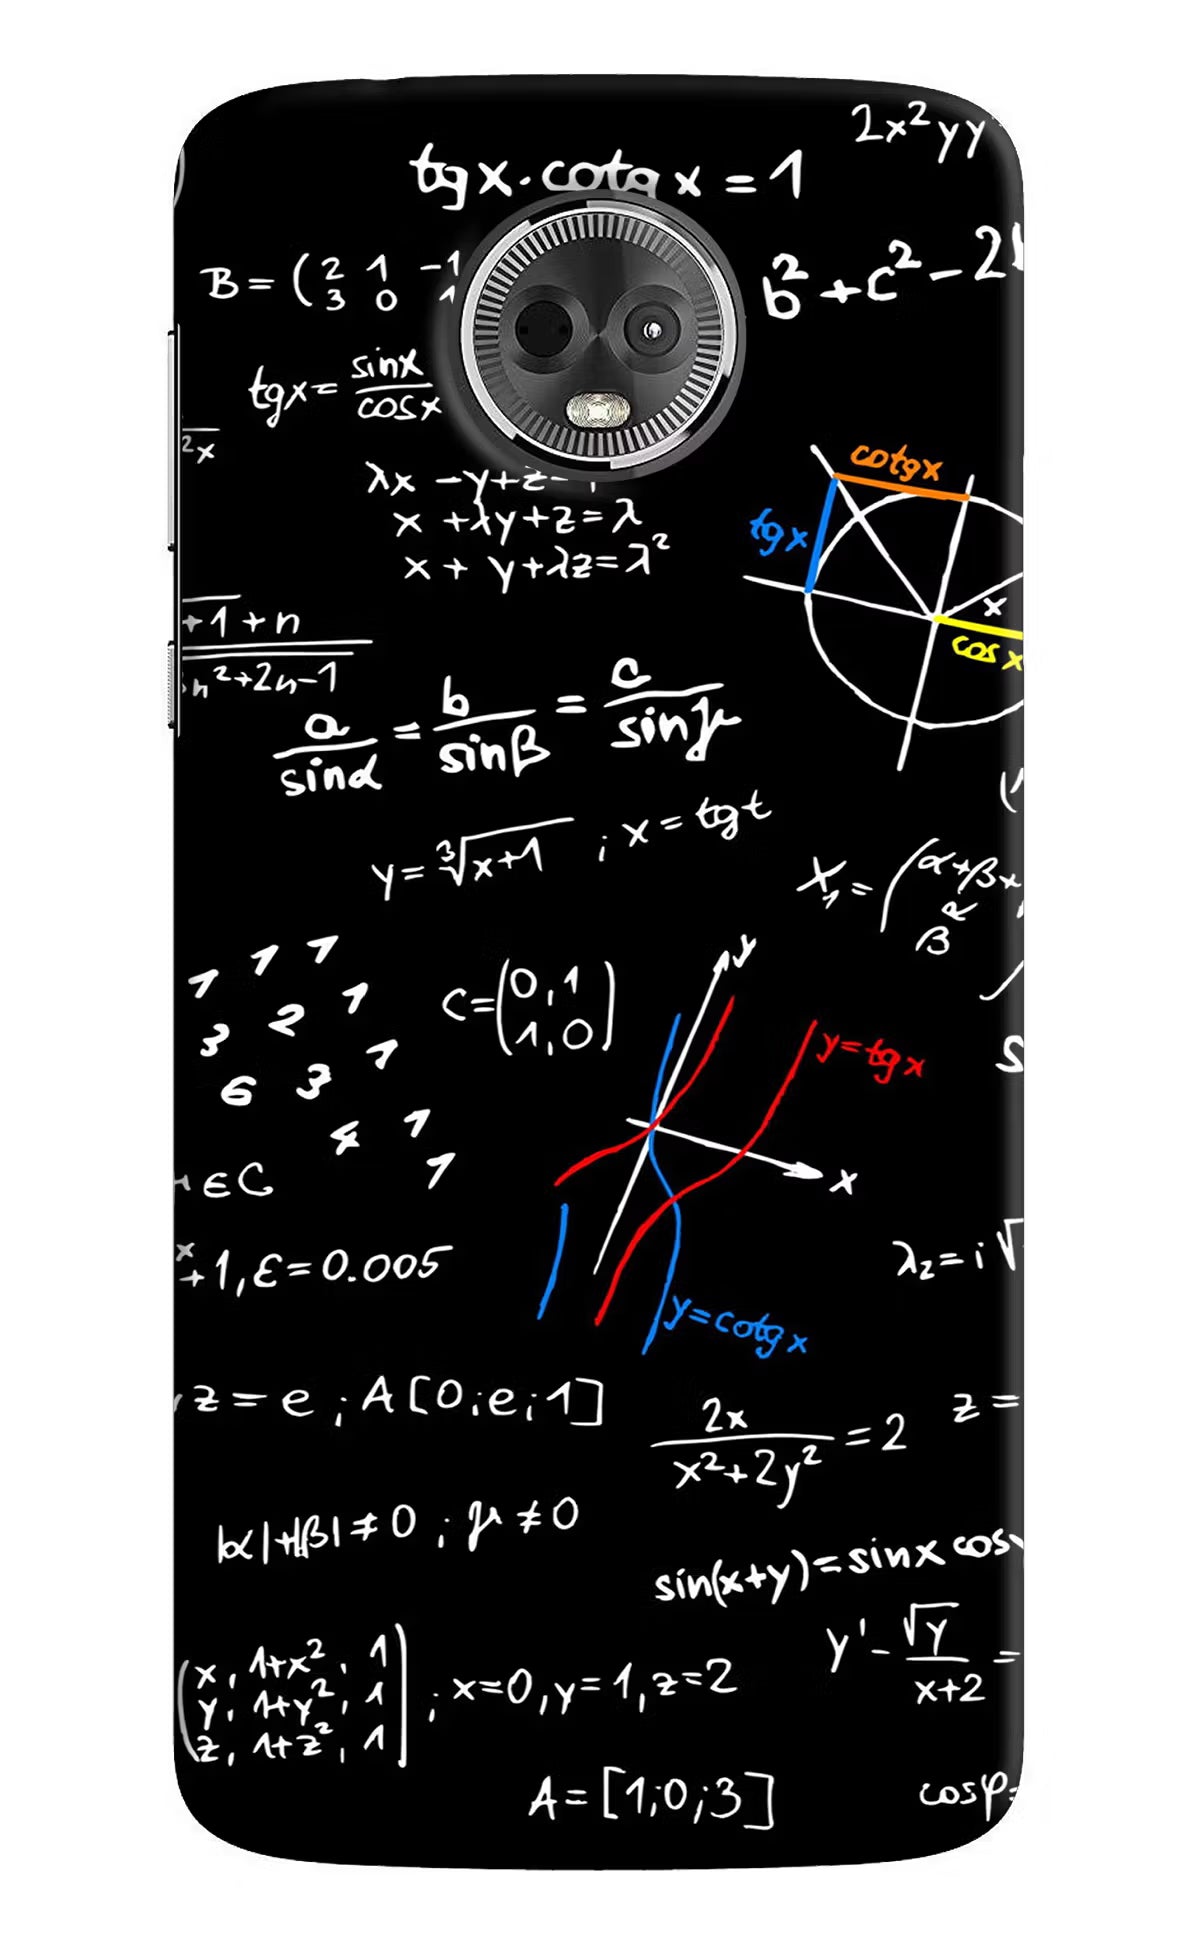 2x²yy
tgx·cotgx=1
B=(2 1 -1
3 0 1
b²+c²-2
tgx=sinx/cosx
2x
cotgx
λx-y+z-1
tgx
x+λy+z=λ
x+y+λz=λ²
x
+1+n
cosx
n²+2n-1
a/sinα=b/sinβ=c/sinμ
y=³√x+1 ; x=tgt
X₁=(α+β+
β R
1 1 1
3 2 1
6 3 1
4 1
1
C=(0,1
1,0)
y
y=tgx
S
x
εC
x
+1,ε=0.005
λ₂=i√
y=cotgx
z=e;A[0;e;1]
2x/x²+2y²=2
z=
|α|+|β|≠0 ; μ≠0
sin(x+y)=sinx cos
y'-√y/x+2=
(x, 1+x², 1
y, 1+y², 1
z, 1+z², 1) ; x=0,y=1,z=2
A=[1;0;3]
cosφ=